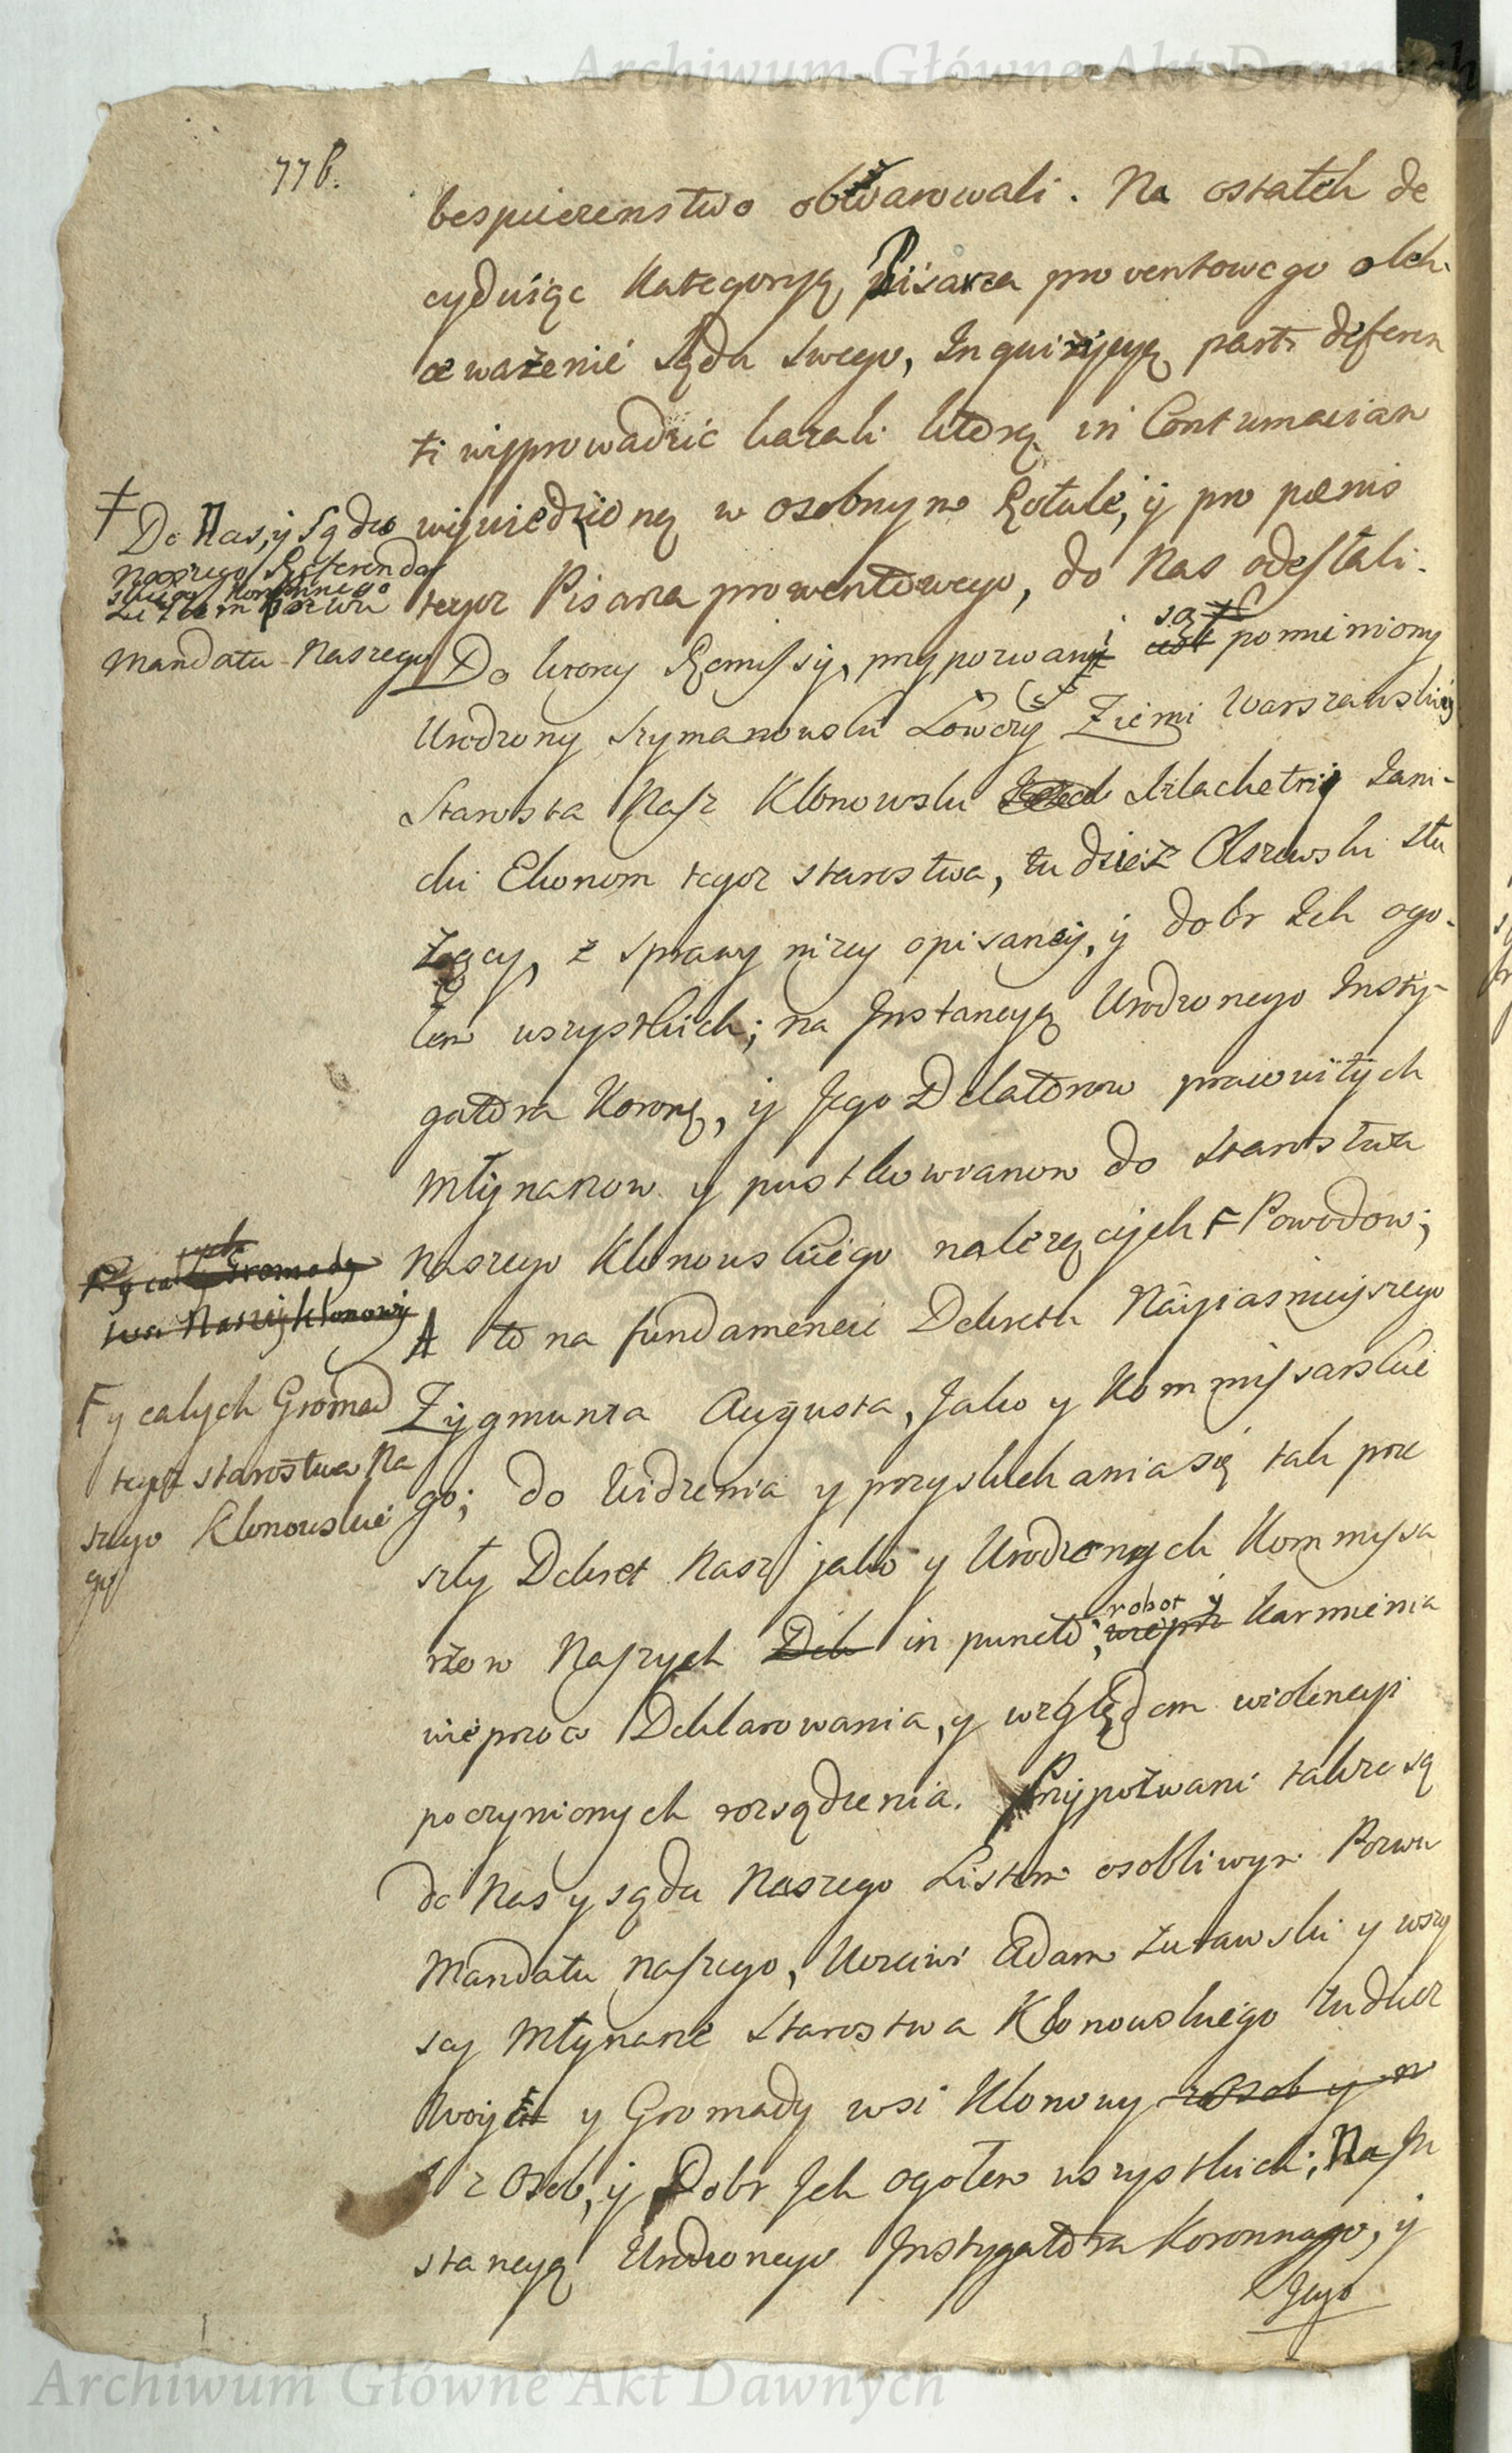 Archiwum Główne Akt Dawnych
77b.
bespieczenstwo obwarowali. Na ostatek de
cyduiąc Kategoryą Pisarza prowentowego o lek-
ce ważenie Sądu swego, Inquizycyą parti deferen
ti wyprowadzic kazali ktorą in Contumaciam
wywiedzioną w osobnym Rotule, y pro pœnis
tegoz Pisarza prowentowego, do Nas odesłali.
Do ktorey Remissy, przypozwani są pomieniony
Urodzony Szymanowski Łowczy Ziemi Warszawskiey
Starosta Nasz Klonowski Szlachetni Jani-
cki Ekonom tegoz starostwa, tudziesz Olszewski słu
żący, z sprawy niżey opisaney, y dobr Ich ogo-
łem wszystkich; na Instancyą Urodzonego Insty-
gatora Koronę, y Jego Delatorow prawowitych
Młynarzow y pustkowianow do Starostwa
Naszego Klonowskiego nalezących F Powodow;
A to na fundamencie Dekretu Nayiasnieyszego
Zygmunta Augusta, Jako y Kommissarskie
go; do widzenia y przysłuchania się tak prze
szły Dekret Nasz jako y Urodzonych Kommyssa
rzow Naszych Dek in puncto; robot y karmienia
wieprzow Deklarowania, y względem wiolencyi
poczynionych rozsądzenia. Przypozwani takze są
do Nas y sądu Naszego Listem osobliwym Pozwu
Mandatu naszego, Uczciwi Adam Żurawski y wszy
scy Młynarze Starostwa Klonowskiego tudziez
Woyt y Gromady wsi Klonowy z Osob y w
z Osob, y Dobr Jch ogołem wszystkich; Na Jn
stancyą Urodzonego Jnstygatora Koronnego, y
Jego
Ɨ Do Nas, y Sądu
Naszego Referendar
skiego Koronnego
Listem pozwu
Mandatu Naszego
F y całych Gromad
tegoż starostwa Na
szego Klonowskie
go
Archiwum Główne Akt Dawnych